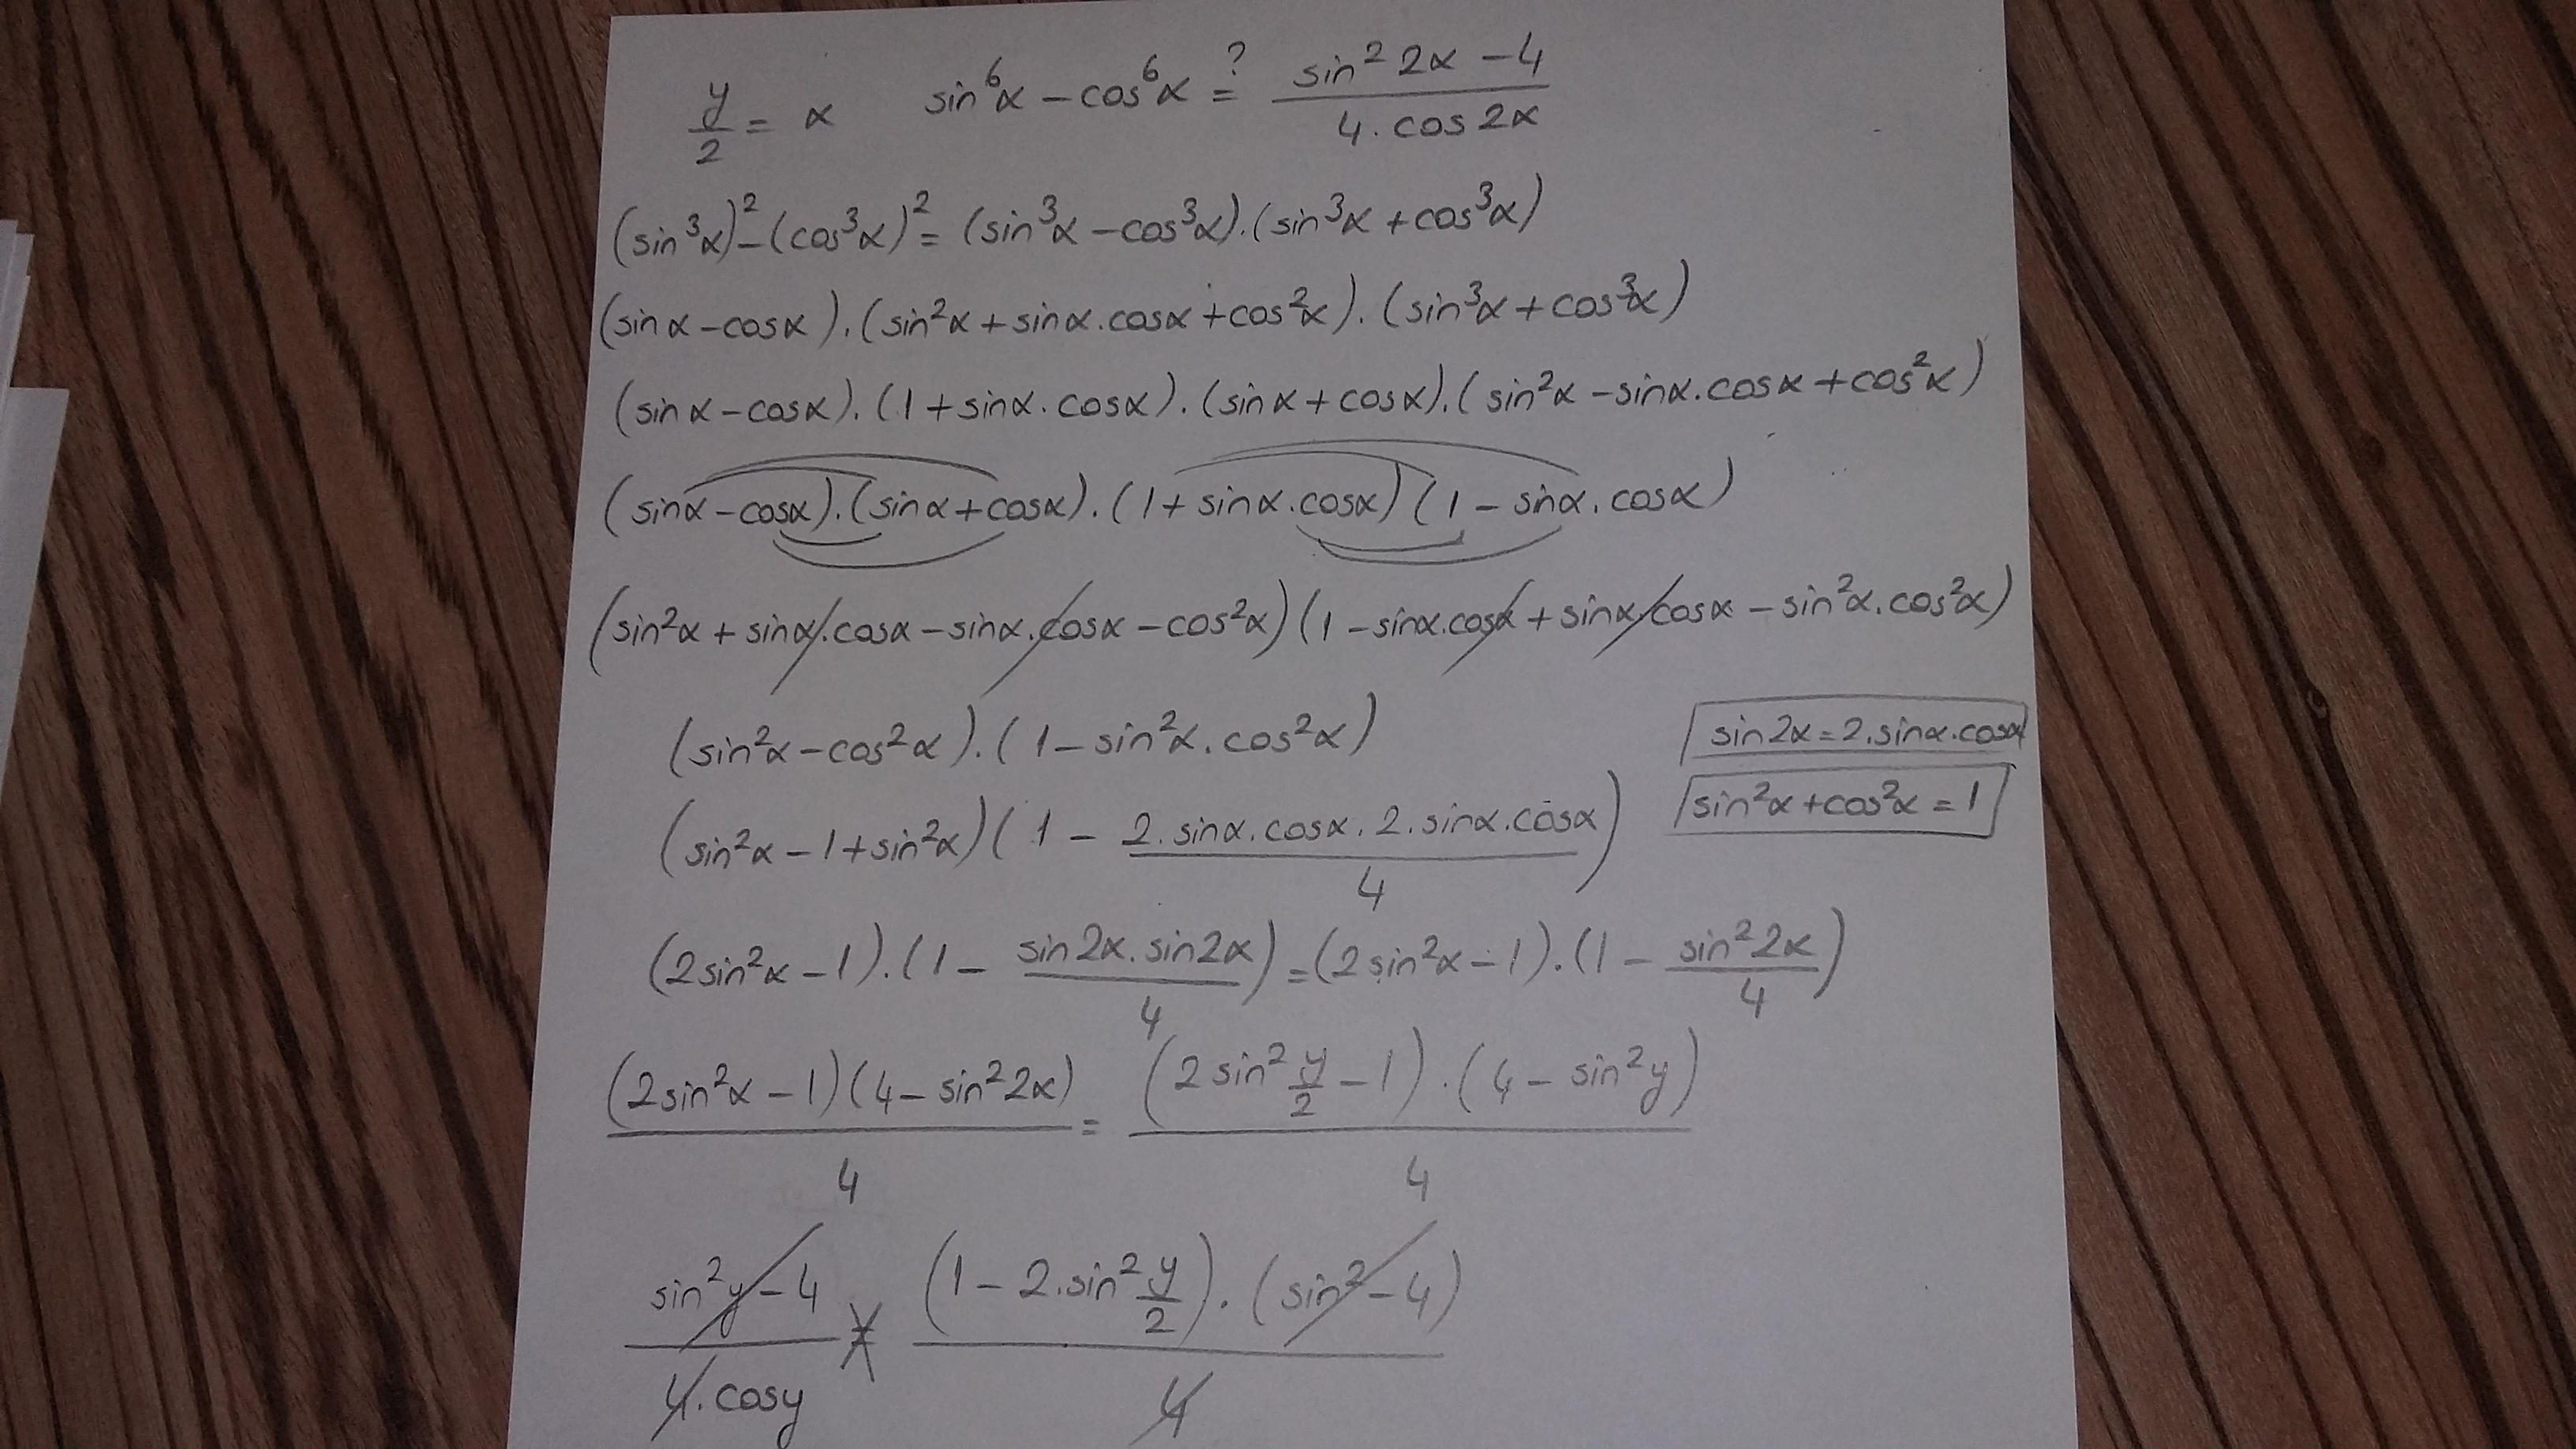 y/2 = α sin⁶α − cos⁶α =? (sin²2α − 4)/(4.cos2α)
(sin³α)² − (cos³α)² = (sin³α − cos³α).(sin³α + cos³α)
(sinα − cosα).(sin²α + sinα.cosα + cos²α).(sin³α + cos³α)
(sinα − cosα).(1 + sinα.cosα).(sinα + cosα).(sin²α − sinα.cosα + cos²α)
(sinα − cosα).(sinα + cosα).(1 + sinα.cosα)(1 − sinα.cosα)
(sin²α + sinα.cosα − sinα.cosα − cos²α)(1 − sinα.cosα + sinα cosα − sin²α.cos²α)
(sin²α − cos²α).(1 − sin²α.cos²α)
sin2α = 2.sinα.cosα
sin²α + cos²α = 1
(sin²α − 1 + sin²α)(1 − (2.sinα.cosα.2.sinα.cosα)/4)
(2sin²α − 1).(1 − (sin2α.sin2α)/4) = (2sin²α − 1).(1 − (sin²2α)/4)
((2sin²α − 1)(4 − sin²2α))/4 = ((2sin² y/2 − 1).(4 − sin²y))/4
(sin²y − 4)/(4.cosy) ≠ ((1 − 2.sin² y/2).(sin² − 4))/4